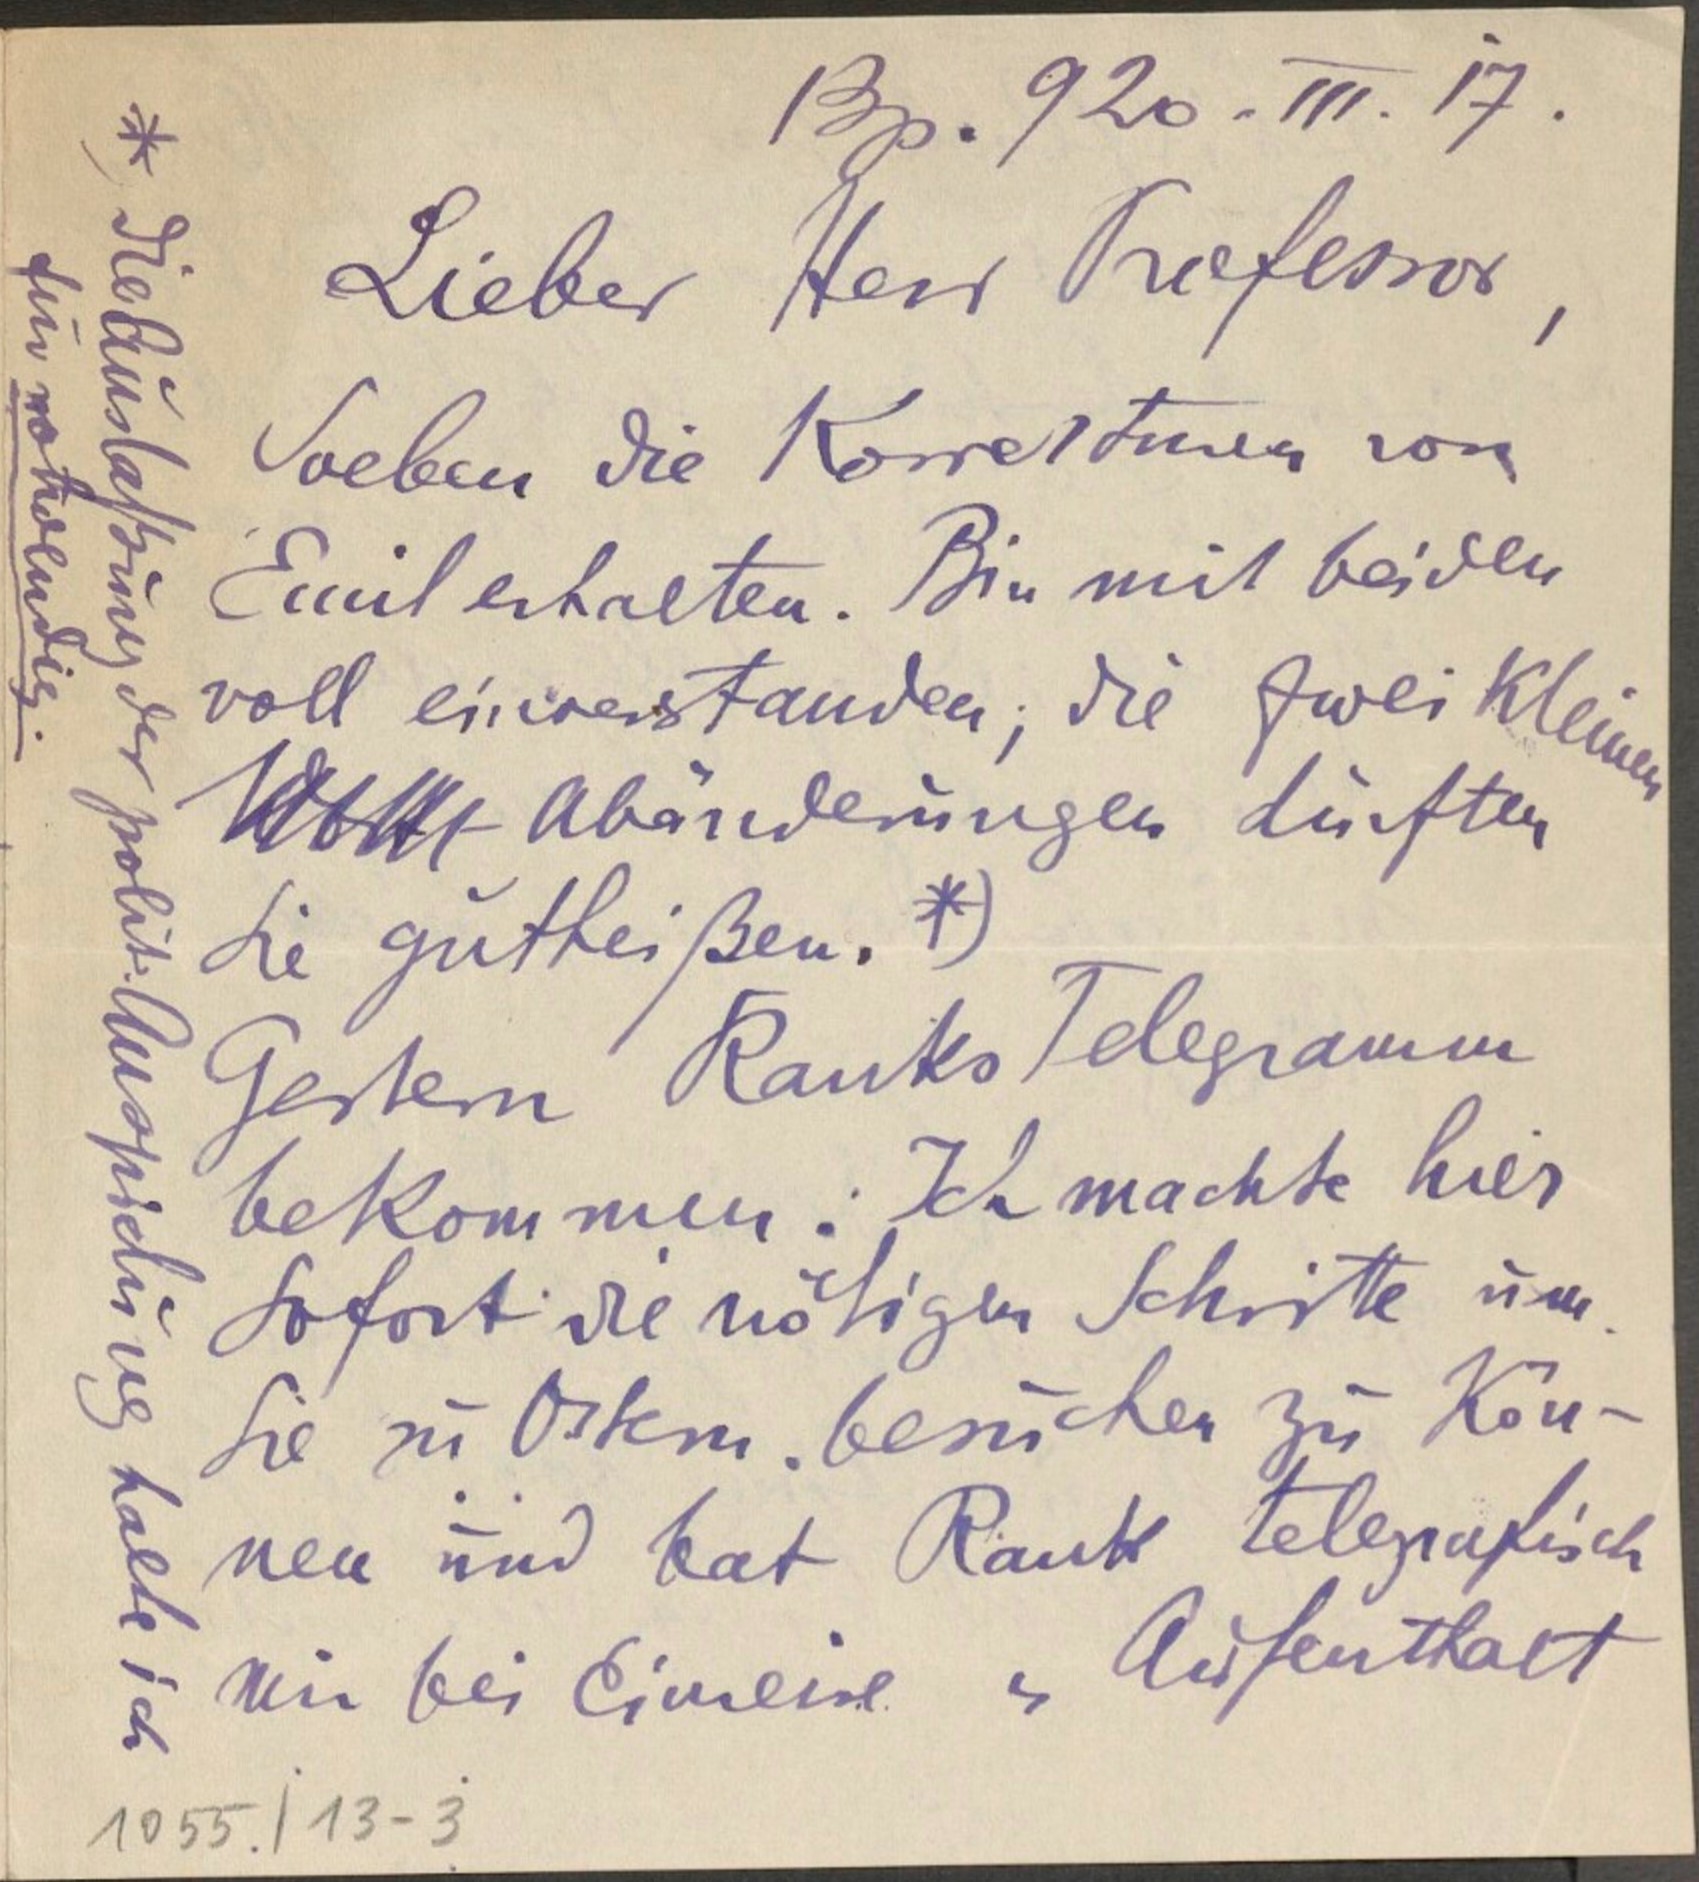 Bp. 920. III. 17.
Lieber Herr Professor,
Soeben die Korrekturen von
Emil erhalten. Bin mit beiden
voll einverstanden; die zwei kleinen
Abänderungen dürften
Sie gutheißen. *)
Gestern Ranks Telegramm
bekommen: Ich machte hier
sofort die nötigen Schritte um
Sie zu Ostern besuchen zu kön-
nen und bat Rank telegrafisch
mir bei Einreise u Aufenthalt
* Die Auslaßung der polit. Anspielung halte ich
für notwendig.
1055./13-3